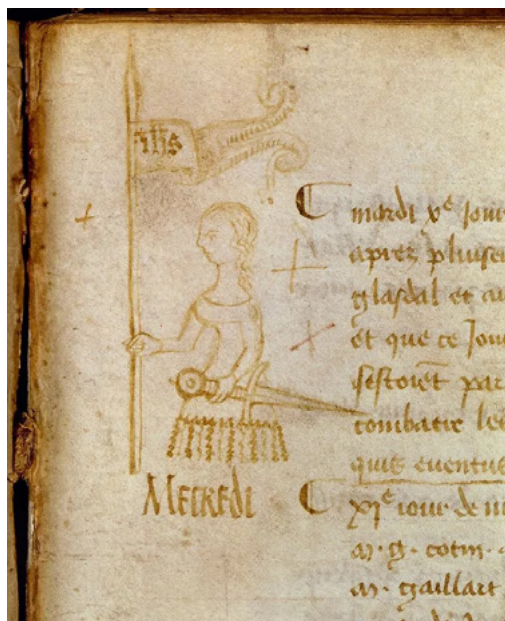 ihs
mardi xe jour
apres pluseu
glasdal et au
et que ce Jour
sestoiẽt par
combatre les
quis eventus
MECREDI
XIe iour de m
m. g. cotin
m. gaillart